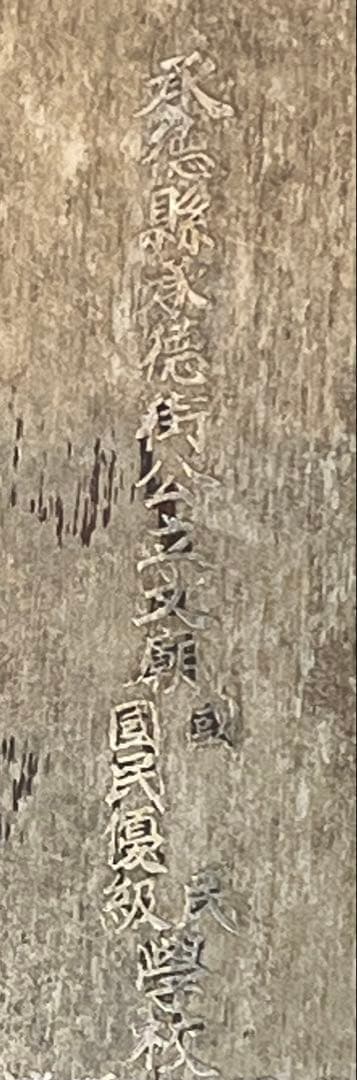 承德縣承德街公立文廟
國民
國民優級
學校